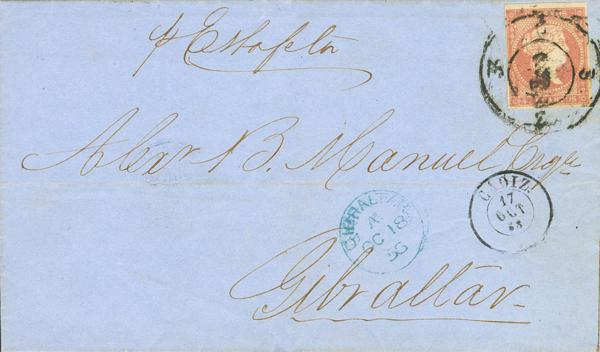 p Estafeta
Alexr B. Manuel Esqre
Gibraltar
GIBRALTAR
A
OC 18
CADIZ.
17
OCT